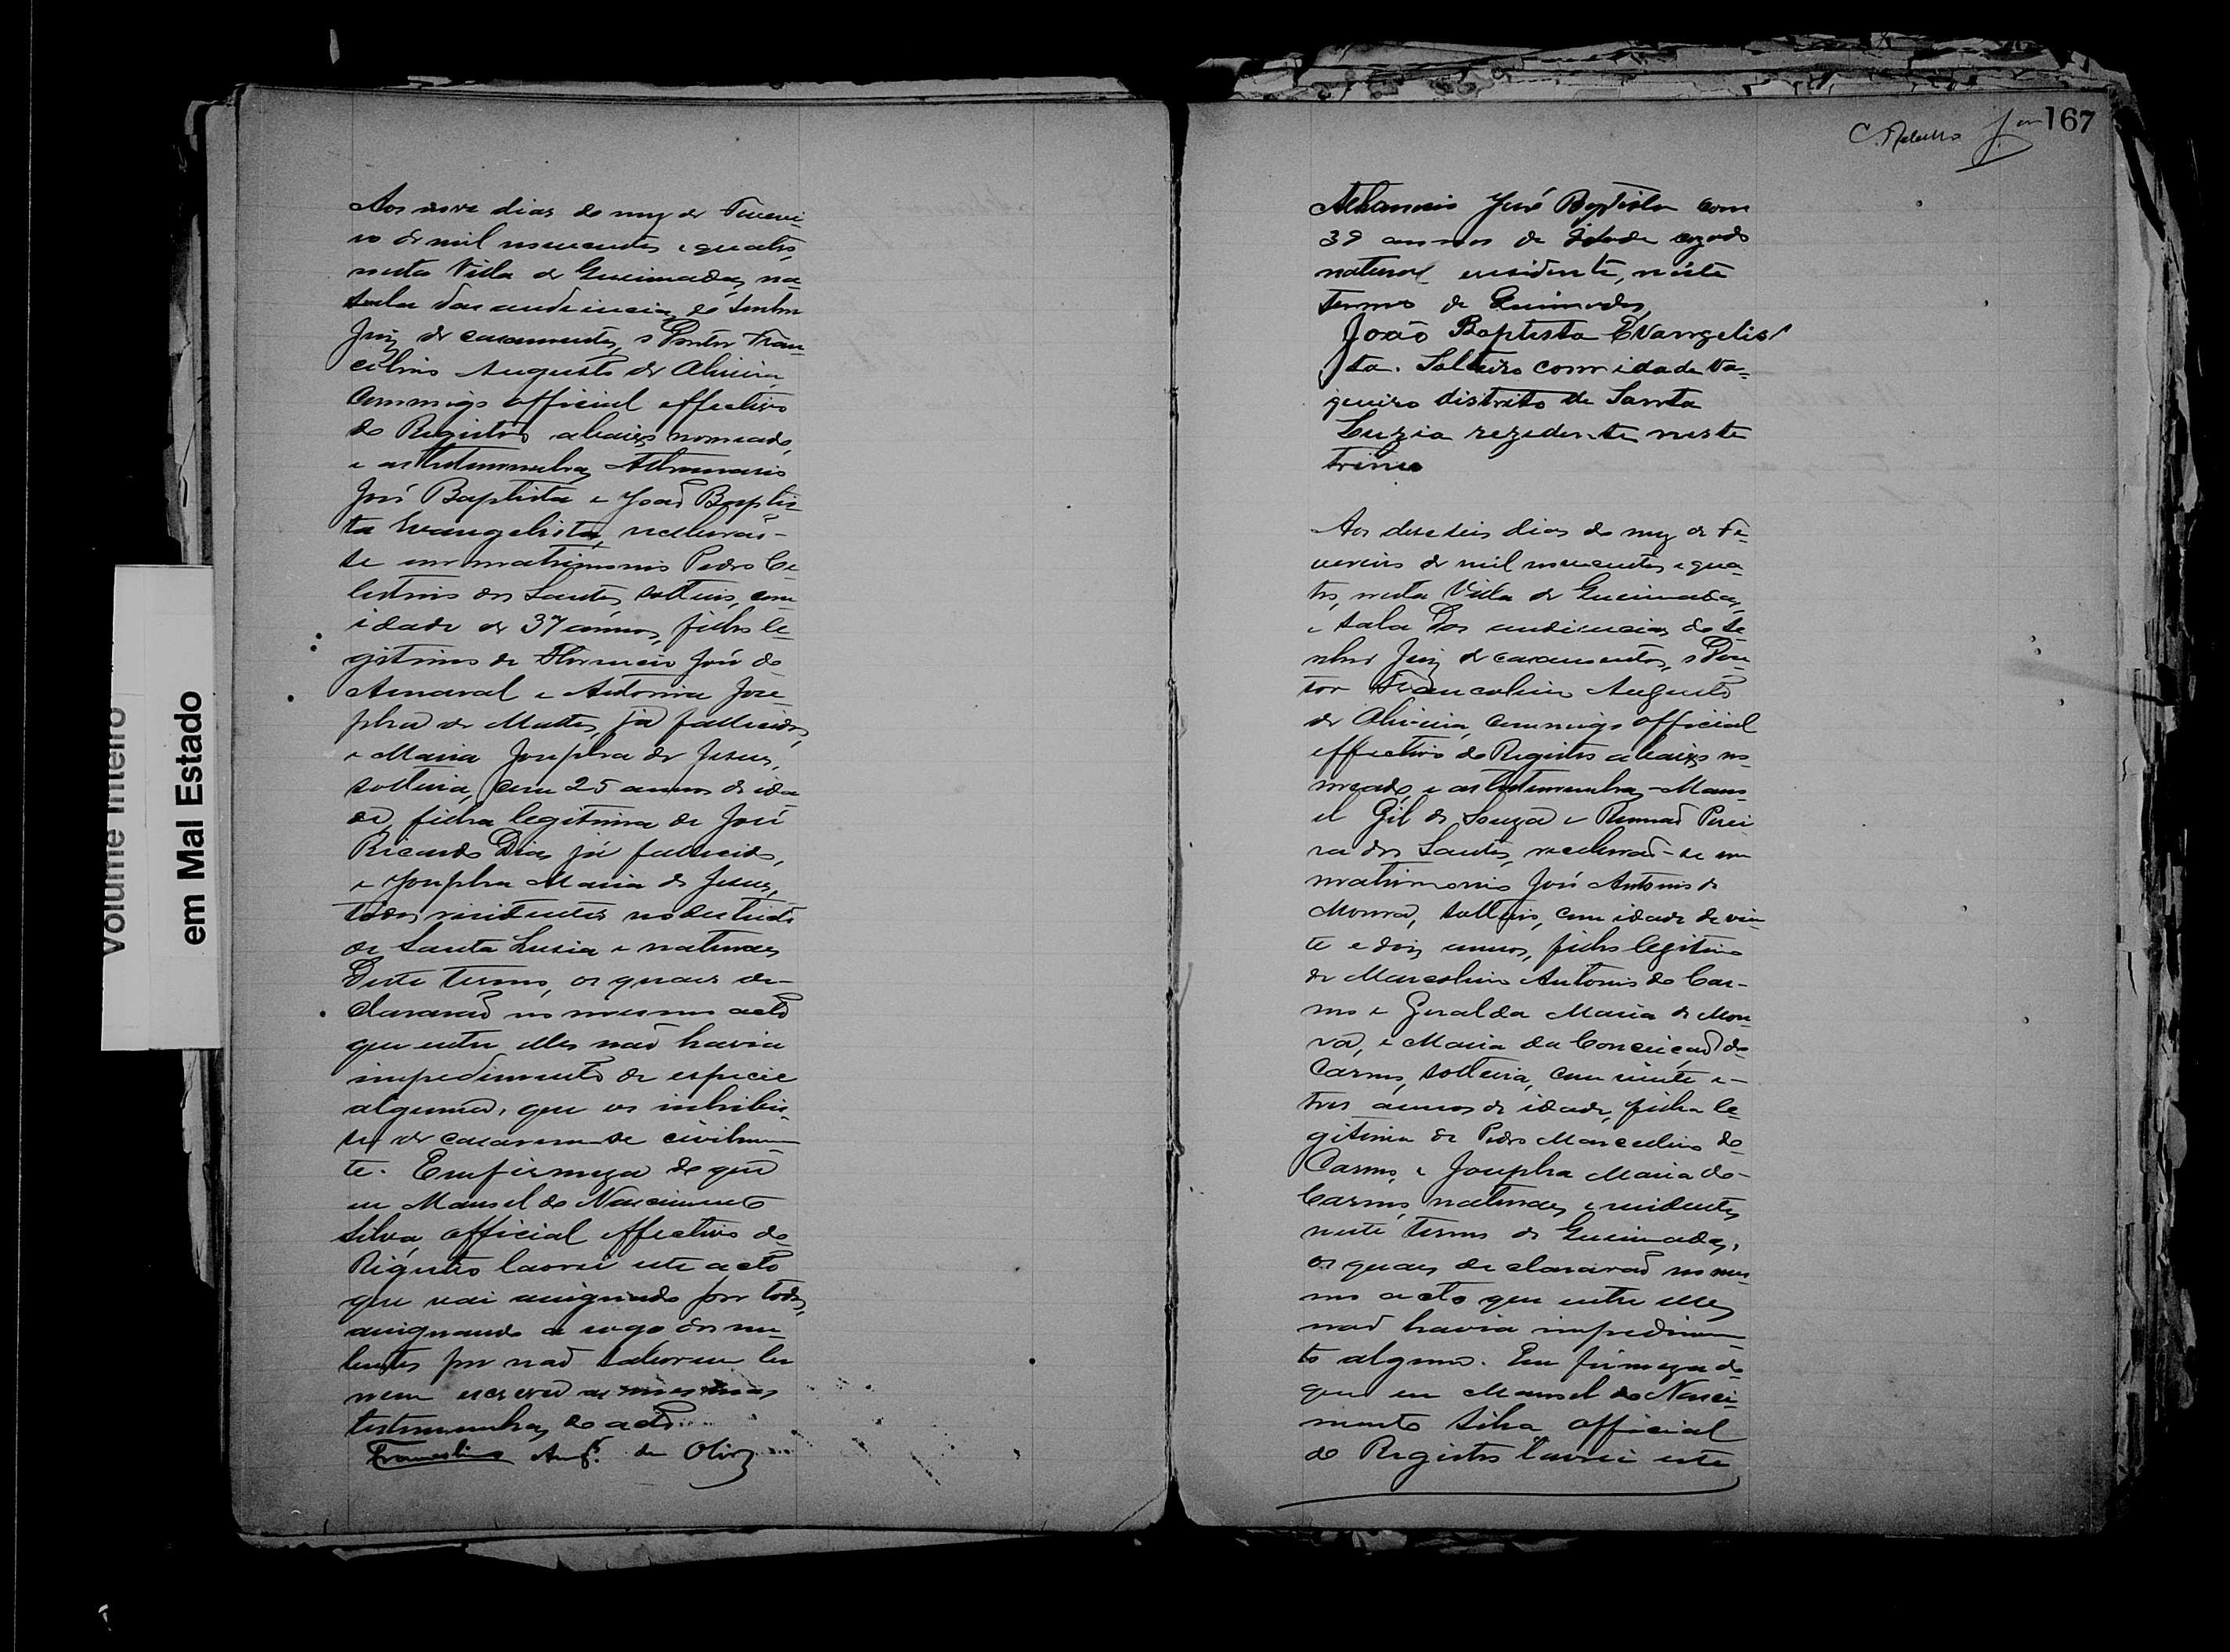 Volume Inteiro
em Mal Estado
Aos nove dias do mez de Feverei-
ro de mil novecentos e quatro,
nesta Villa de Queimadas, na
sala das audiencias do Senhor
Juiz de casamentos, o Doutor Fran-
colino Augusto de Oliveira,
commigo official effectivo
do Registro abaixo nomeado,
e as testemunhas Athanasio
José Baptista e João Baptis-
ta Evangelista, receberão-
se em matrimonio Pedro Ce-
lestino dos Santos, solteiro, com
idade de 37 annos, filho le-
gitimo de Florencio José do
Amaral e Antonia Jose-
pha de Mattos, já fallecidos,
e Maria Josepha de Jesus,
solteira, com 25 annos de ida-
de, filha legitima de José
Ricardo Dias já fallecido,
e Josepha Maria de Jesus,
todos residentes no destricto
de Santa Lusia e naturaes
Deste termo, os quaes de-
clararaõ no mesmo acto
que entre elles naõ havia
impedimento de especie
alguma, que os inhibis-
se de casarem-se civilmen-
te. Em firmeza do que
eu Manoel do Nascimento
Silva, official effectivo do
Registro lavrei este acto
que vai assignado por todos,
assignando a rogo dos nu-
bentes por naõ saberem ler
nem escrever as mesmas
testemunhas do acto.
Francolino Augº. de Olivª
167
Athanasio José Baptista com
39 annos de Idade cazado
natural e residente, néste
termo de Queimadas,
João Baptista Evangelis
ta. Solteiro com idade Va-
queiro distrito de Santa
Luzia rezidente neste
Aos deseseis dias do mez de Fe-
vereiro de mil novecentos e qua-
tro, nesta Villa de Queimadas,
e sala Das audiencias do Se-
nhor Juiz de casamentos, o Dou-
tor Francolino Augusto
de Oliveira, commigo official
effectivo do Registro abaixo no-
meado, e as testemunhas Mano-
el Gil de Souza e Romaõ Perei-
ra dos Santos, receberaõ-se em
matrimonio José Antonio de
Moura, solteiro, com idade de vin-
te e dois annos, filho legitimo
de Marcolino Antonio do Car-
mo e Geralda Maria de Mou-
ra, e Maria da Conceiçaõ do
Carmo, solteira, com vinte e-
tres annos de idade, filha le-
gitima de Pedro Marcelino do
Carmo, e Josepha Maria do-
Carmo, naturaes e residentes
neste termo de Queimadas,
os quaes declararaõ no mes-
mo acto que entre elles
naõ havia impedimen-
to algum. Em firmeza do
que eu Manoel do Nasci-
mento Silva official
do Registro lavrei este